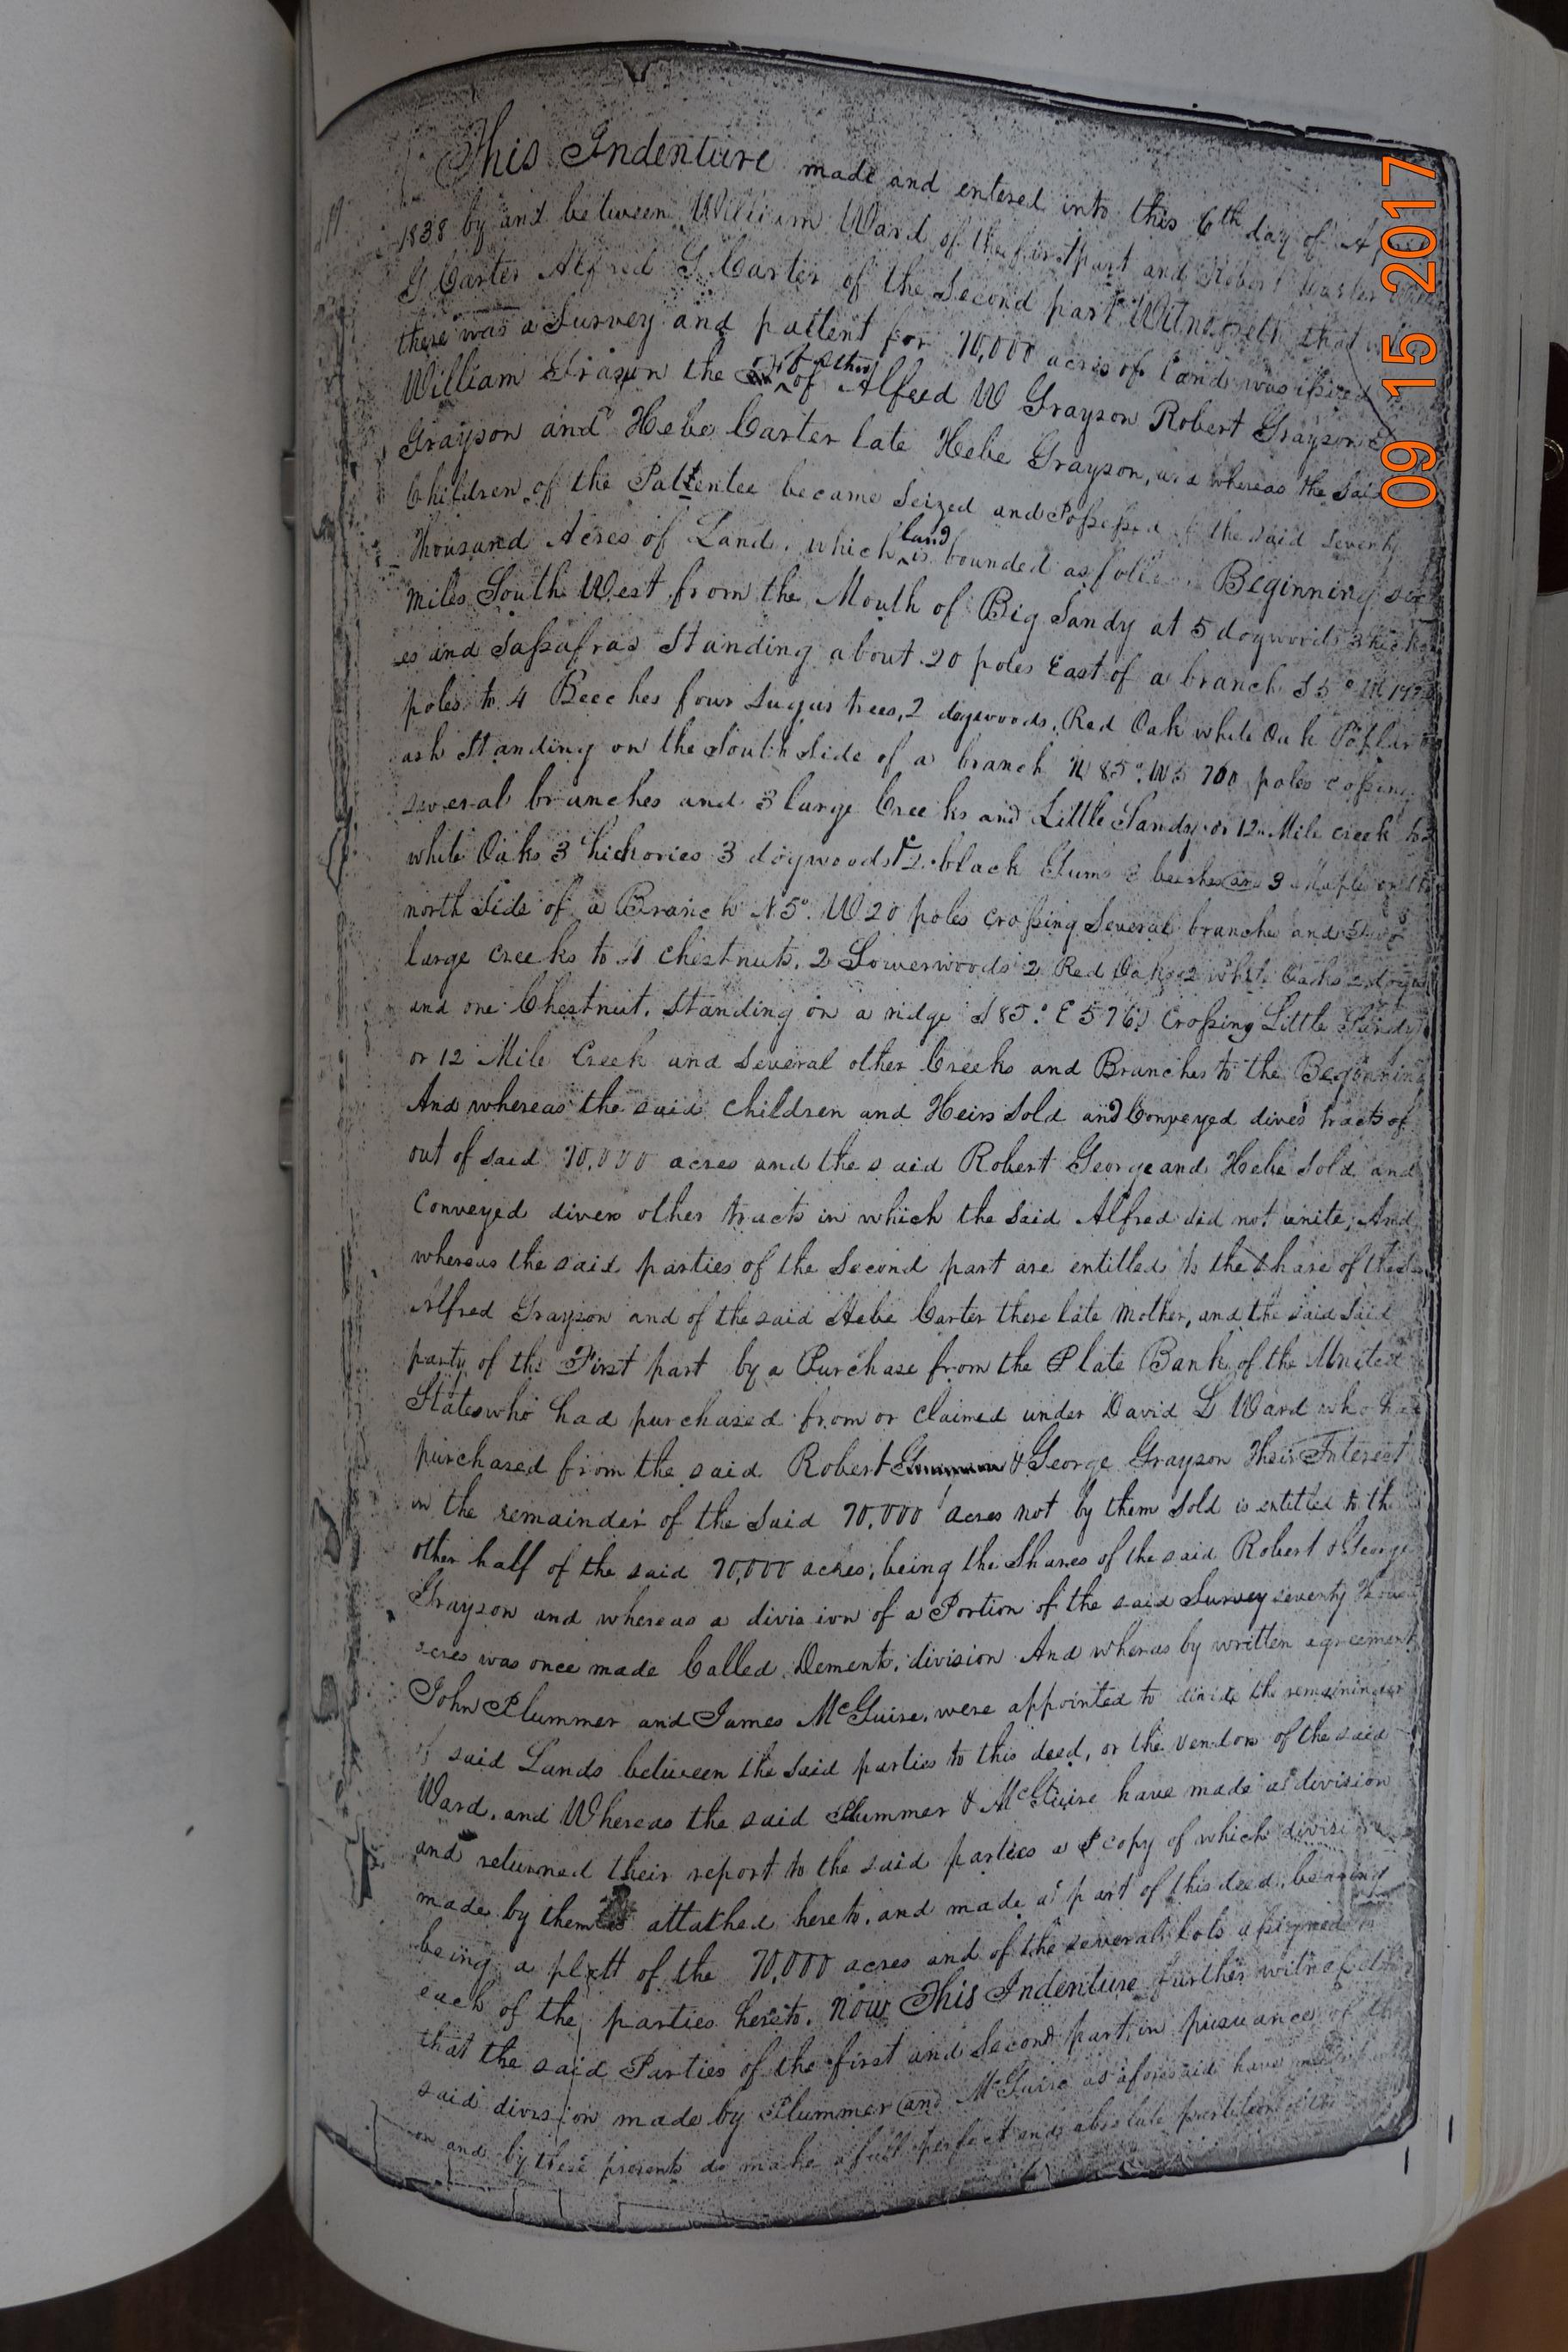 This Indenture made and entered into this 6th day of
1838 by and between William Ward of the first part and Robert Carter
G Carter Alfred G Carter of the Second part Witnesseth that
there was a Survey and pattent for 70,000 acres of land was issued
William Grayson the of Alfred W Grayson Robert Grayson
Grayson and Hebe Carter late Hebe Grayson, and whereas the Said
Children of the Pattentee became Seized and Possessed of the said Seventy
Thousand Acres of Land, which land is bounded as follows Beginning six
miles South West from the Mouth of Big Sandy at 5 dogwoods 3
es and Sassafras Standing about 20 poles East of a branch S 5° W
poles to 4 Beeches four Sugar trees, 2 dogwoods, Red Oak white Oak Poplar
ash Standing on the South Side of a branch N 85° W 5 760 poles crossing
several branches and 3 large Creeks and Little Sandy or 12 Mile creek to
white Oaks 3 hickories 3 dogwoods 2 black Gums 2 beeches and 3 Maples on the
north Side of a Branch N 5° W 20 poles crossing Several branches and Two
large creeks to 4 chestnuts, 2 Sowerwoods 2 Red Oaks 2 white Oaks 2
and one Chestnut, Standing on a ridge S 85° E 5760 Crossing Little Sandy
or 12 Mile Creek and Several other Creeks and Branches to the Beginning
And whereas the said children and Heirs Sold and Conveyed divers tracts of
out of said 70,000 acres and the said Robert George and Hebe Sold and
Conveyed divers other tracts in which the Said Alfred did not unite, And
whereas the said parties of the Second part are entitled to the Share of the
Alfred Grayson and of the said Hebe Carter there late Mother, and the said Said
party of the First part by a Purchase from the Plate Bank of the United
States who had purchased from or claimed under David L Ward who
purchased from the said Robert & George Grayson Their Interest
in the remainder of the Said 70,000 acres not by them Sold is entitled to the
other half of the said 70,000 acres, being the Shares of the said Robert & George
Grayson and whereas a division of a Portion of the said Survey seventy
acres was once made Called Dements, division And whereas by written agreement
John Plummer and James McGuire, were appointed to divide the remaininder
of said Lands between the Said parties to this deed, or the vendors of the said
Ward, and Whereas the said Plummer & McGuire have made a division
and returned their report to the said parties a copy of which division
made by them is attatched hereto, and made a part of this deed, bearing
being a platt of the 70,000 acres and of the several lots assigned to
each of the parties hereto. Now This Indenture further witnesseth
that the said Parties of the first and Second part, in pusuance of the
said division made by Plummer and McGuire as aforesaid have
on and by these presents do make a full perfect and absolute partition of the
09 15 2017